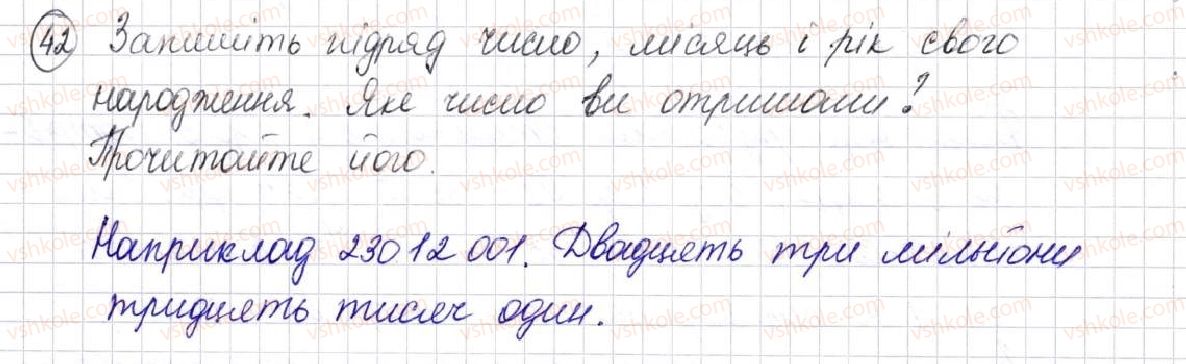 42 Запишіть підряд число, місяць і рік свого
народження. Яке число ви отримали?
Прочитайте його.
Наприклад 23012001. Двадцять три мільйони
тридцять тисяч один.